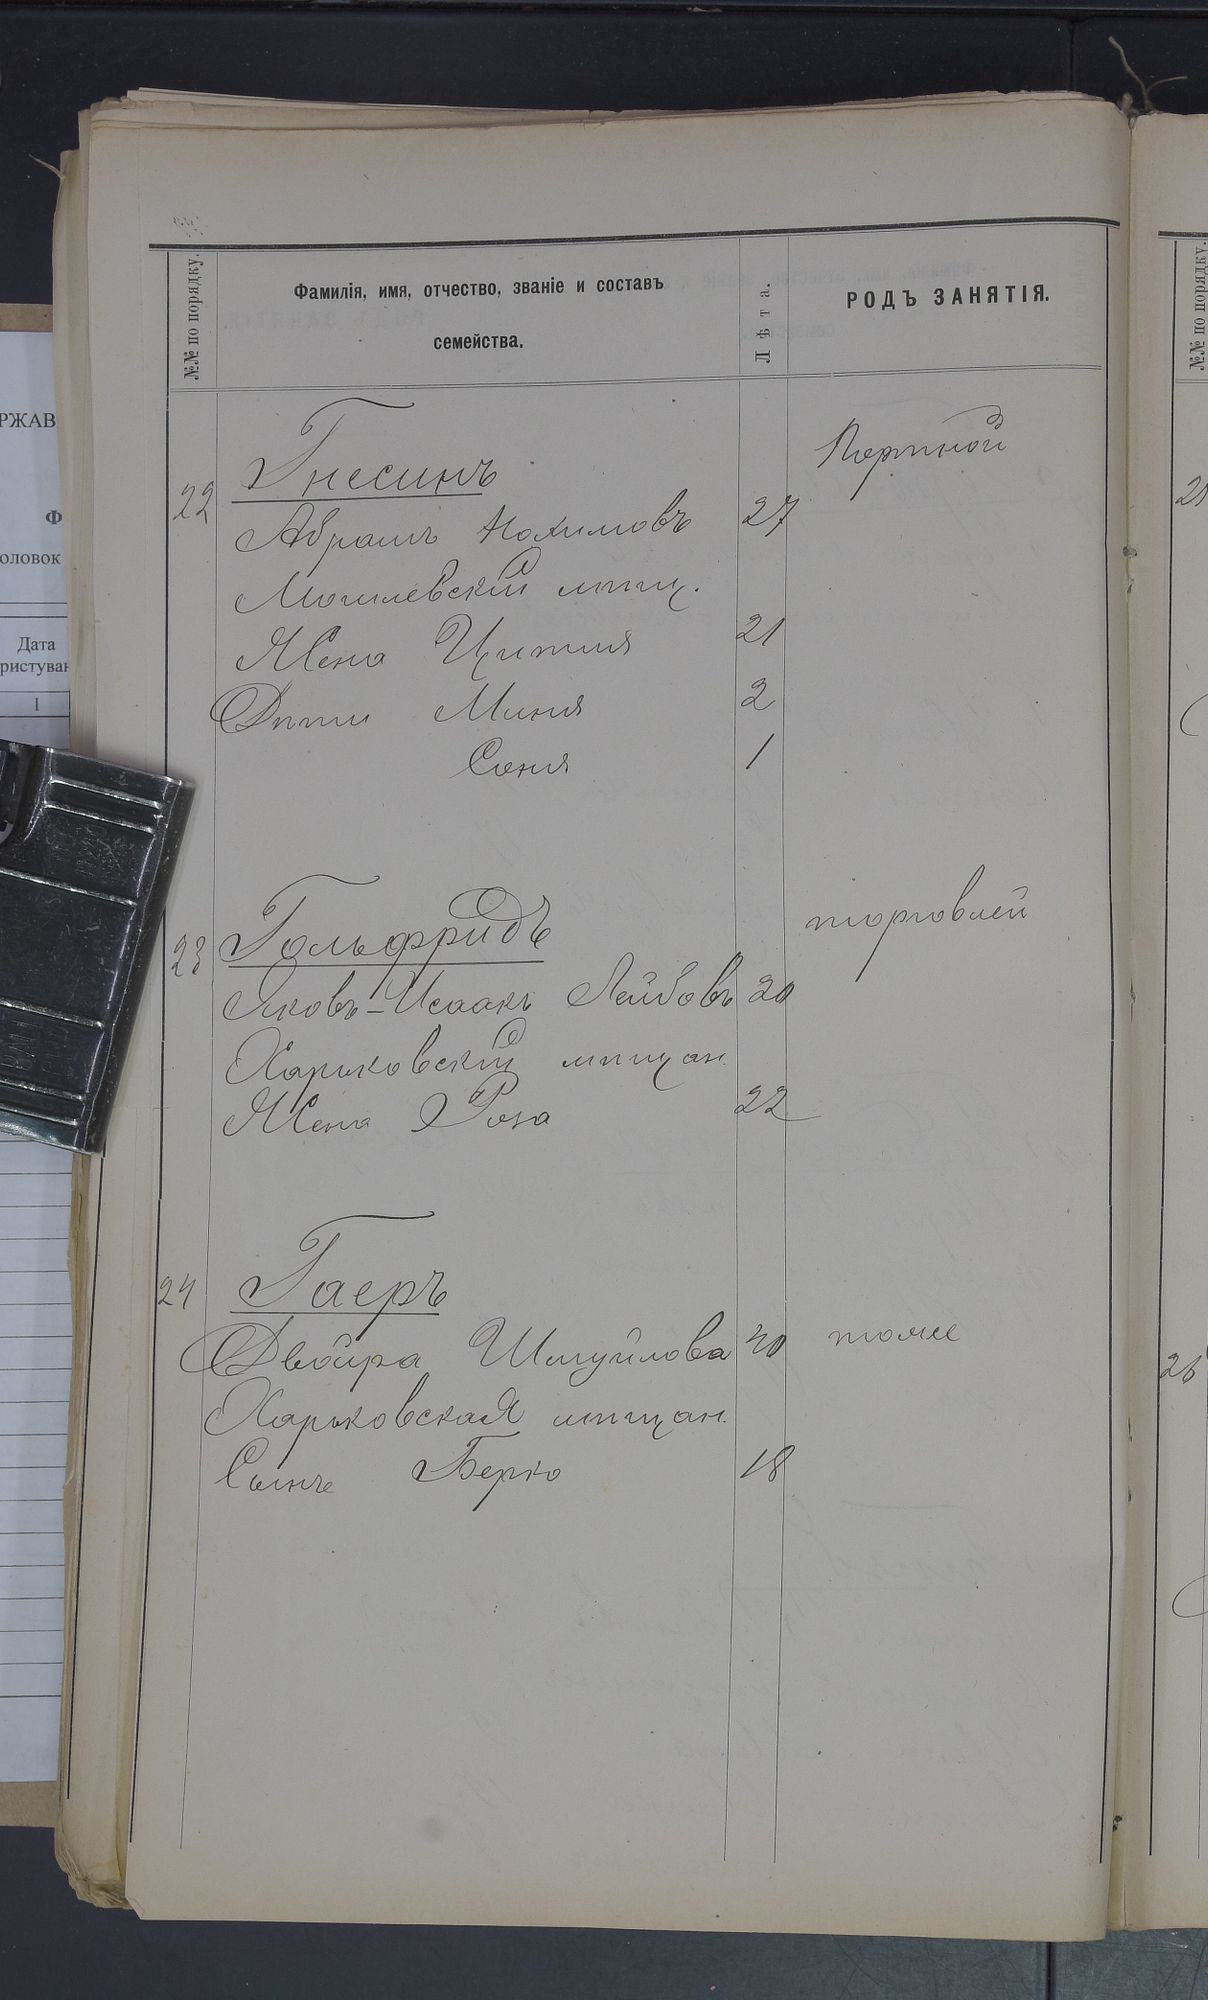 №№ по порядку.
Фамилія, имя, отчество, званіе и составъ
семейства.
Лѣта.
РОДЪ ЗАНЯТІЯ.
22 Гнесинъ Портной
Абрамъ Нохимовъ 27
Могилевскій мѣщ.
Жена Ципия 21
Дѣти Миня 2
Соня 1
23 Гольфридъ торговлей
Яковъ-Исаакъ Лейбовъ 20
Харьковскій мѣщан.
Жена Роза 22
24 Гаеръ
Двойра Шмуйлова 40 тоже
Харьковская мѣщан.
Сынъ Берко 18
РЖАВ
Ф
оловок
Дата
ристуван
1
№№ по порядку.
26